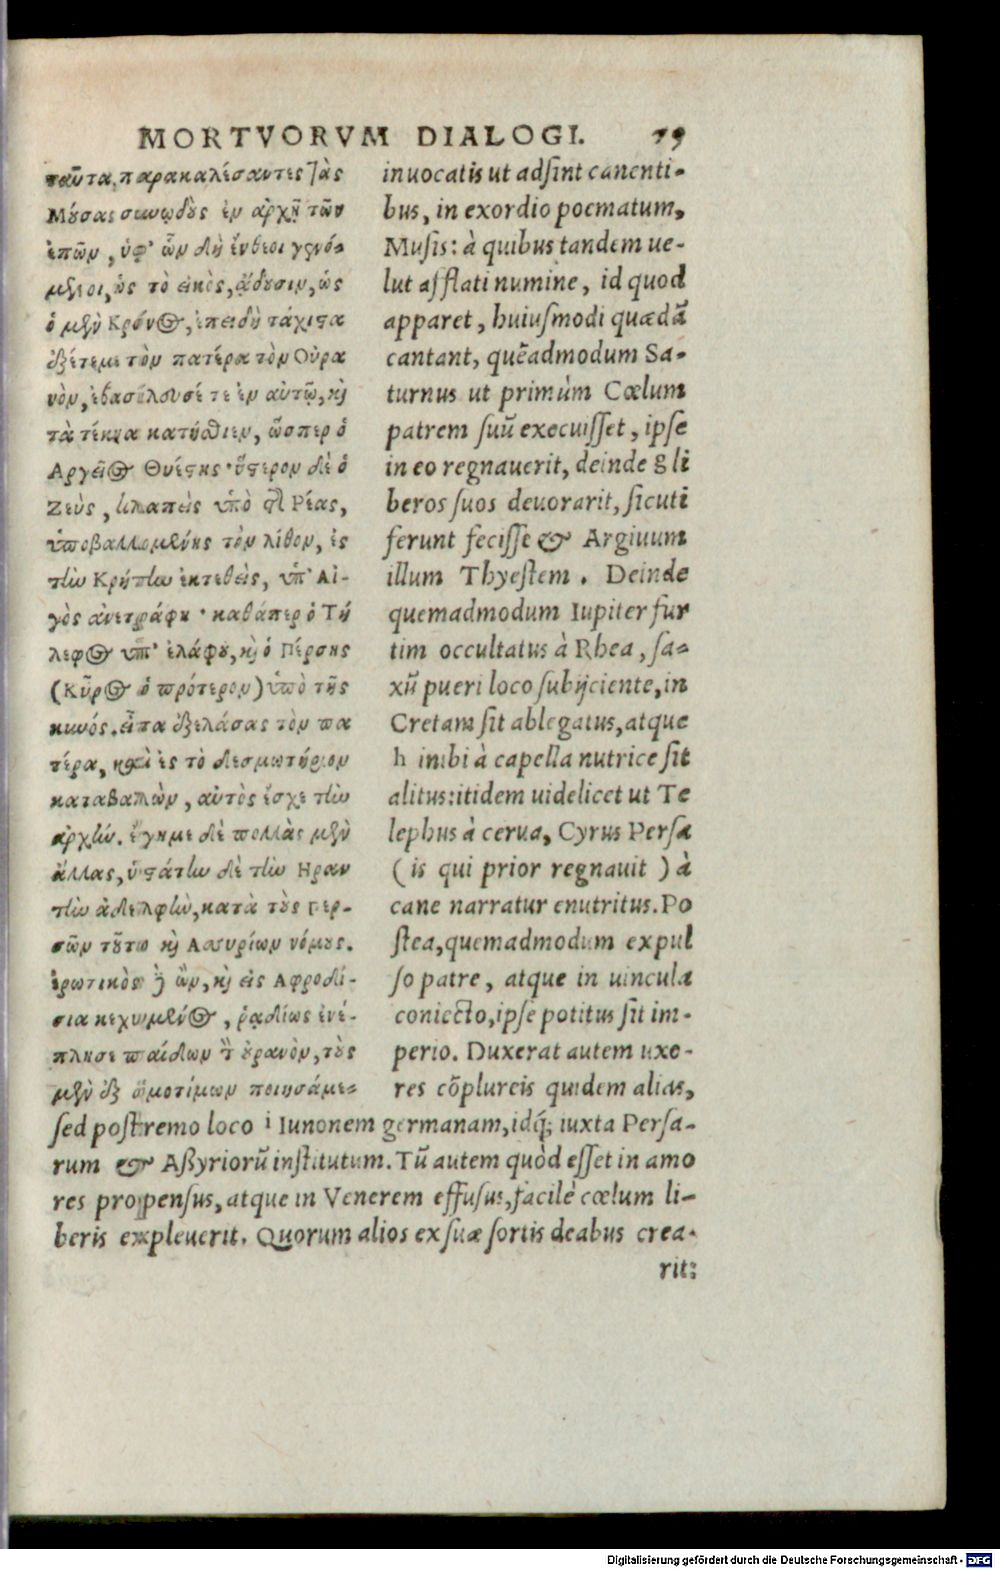 MORTVORVM DIALOGI. 79
ταῦτα, παρακαλέσαντες τὰς
Μούσας συνῳδοὺς ἐν ἀρχῇ τῶν
ἐπῶν, ὑφ' ὧν δὴ ἔνθεοι γενό-
μενοι, ὡς τὸ εἰκὸς, ᾄδουσιν, ὡς
ὁ μὲν Κρόνος, ἐπειδὴ τάχιστα
ἐξέτεμε τὸν πατέρα τὸν Οὐρα
νὸν, ἐβασίλευσέ τε ἐν αὐτῷ, καὶ
τὰ τέκνα κατήσθιεν, ὥσπερ ὁ
Αργεῖος Θυέστης· ὕστερον δὲ ὁ
Ζεὺς, κλαπεὶς ὑπὸ τῆς Ρέας,
ὑποβαλλομένης τὸν λίθον, ἐς
τὴν Κρήτην ἐκτεθεὶς, ὑπ' Αἰ-
γὸς ἀνετράφη· καθάπερ ὁ Τή
λεφος ὑπ' ἐλάφου, καὶ ὁ Πέρσης
(Κῦρος ὁ πρότερον) ὑπὸ τῆς
κυνός. εἶτα ἐξελάσας τὸν πα
τέρα, καὶ ἐς τὸ δεσμωτήριον
καταβαλὼν, αὐτὸς ἔσχε τὴν
ἀρχήν. ἔγημε δὲ πολλὰς μὲν
ἄλλας, ὑστάτην δὲ τὴν Ηραν
τὴν ἀδελφὴν, κατὰ τοὺς Περ-
σῶν τοῦτο καὶ Ασσυρίων νόμους.
ἐρωτικὸς δὲ ὢν, καὶ εἰς Αφροδί-
σια κεχυμένος, ῥᾳδίως ἐνέ-
πλησε παίδων τὸν οὐρανὸν, τοὺς
μὲν ἐξ ὁμοτίμων ποιησάμε-
inuocatis ut adsint canenti-
bus, in exordio poematum,
Musis: à quibus tandem ue-
lut afflati numine, id quod
apparet, huiusmodi quædā
cantant, quēadmodum Sa-
turnus ut primùm Cœlum
patrem suū execuisset, ipse
in eo regnauerit, deinde & li
beros suos deuorarit, sicuti
ferunt fecisse & Argiuum
illum Thyestem. Deinde
quemadmodum Iupiter fur
tim occultatus à Rhea, sa-
xū pueri loco subijciente, in
Cretam sit ablegatus, atque
h inibi à capella nutrice sit
alitus: itidem uidelicet ut Te
lephus à cerua, Cyrus Persa
(is qui prior regnauit) à
cane narratur enutritus. Po
stea, quemadmodum expul
so patre, atque in uincula
coniecto, ipse potitus sit im-
perio. Duxerat autem uxo-
res cōplureis quidem alias,
sed postremo loco i Iunonem germanam, idq́; iuxta Persa-
rum & Aßyriorū institutum. Tū autem quòd esset in amo
res propensus, atque in Venerem effusus, facilè cœlum li-
beris expleuerit. Quorum alios ex suæ sortis deabus crea-
rit:
Digitalisierung gefördert durch die Deutsche Forschungsgemeinschaft - DFG